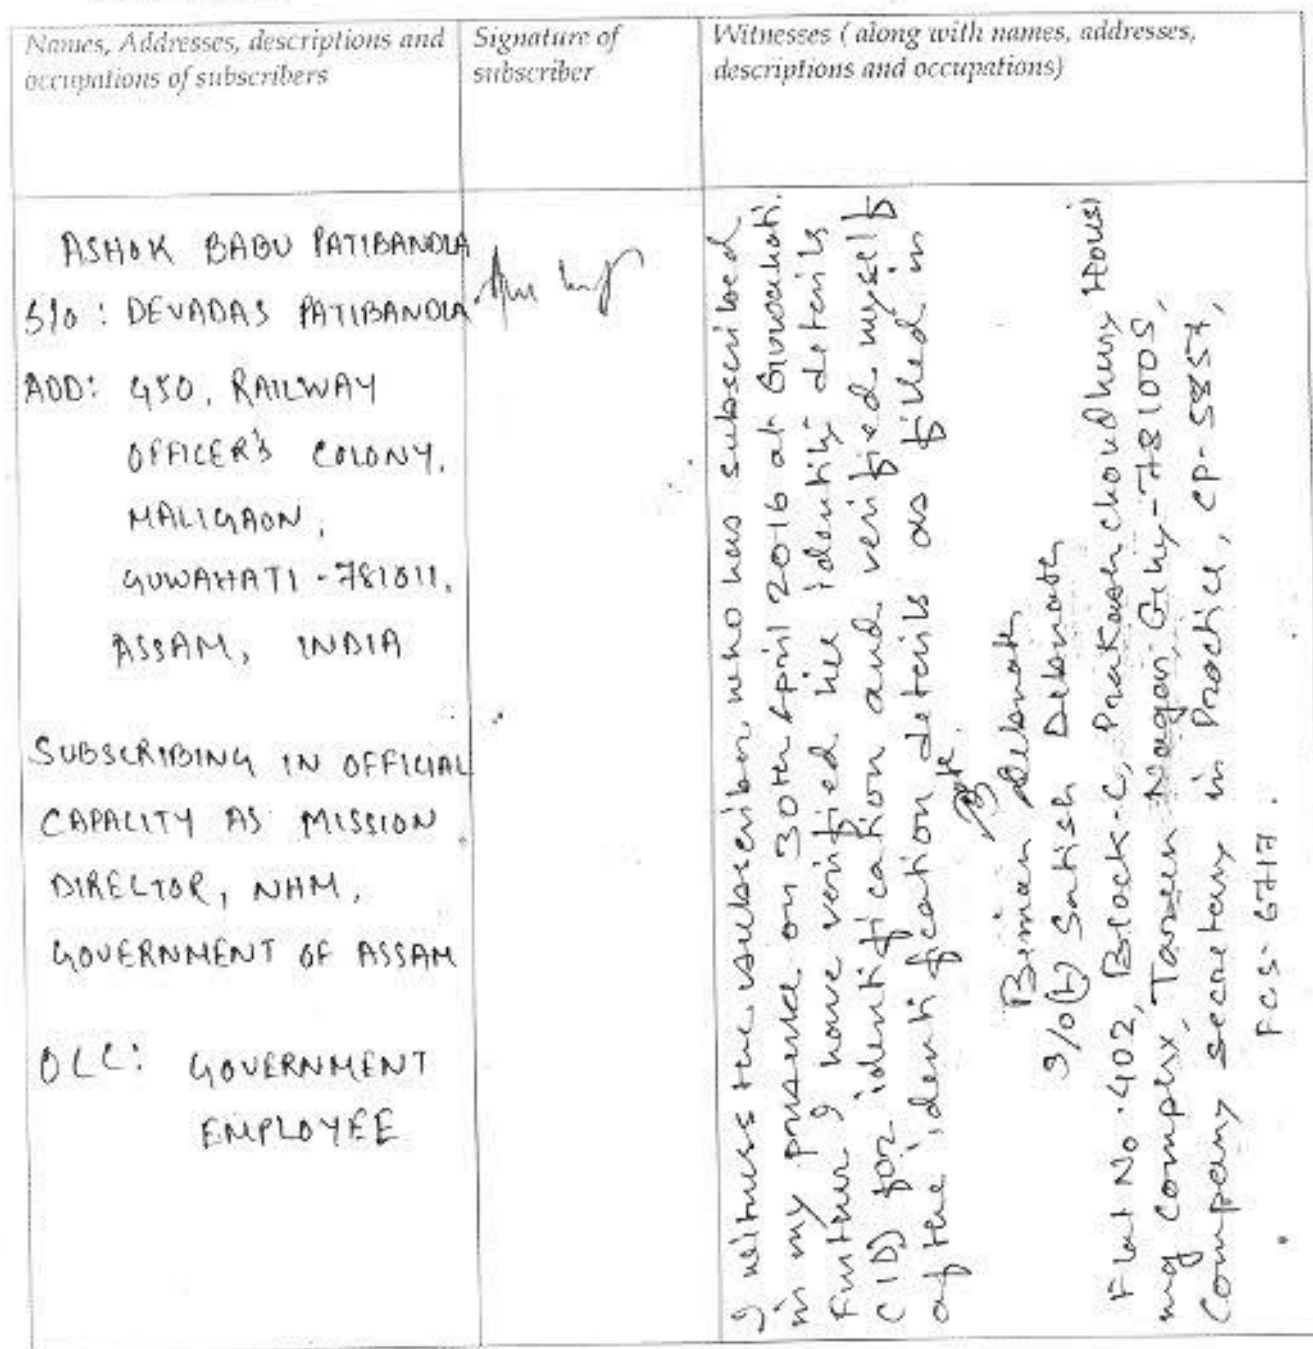 Names, Addresses, descriptions and
occupations of subscribers
Signature of
subscriber
Witnesses ( along with names, addresses,
descriptions and occupations)
ASHOK BABU PATIBANDLA
S/o : DEVADAS PATIBANDLA
ADD: 450, RAILWAY
OFFICER'S COLONY,
MALIGAON,
GUWAHATI - 781011.
ASSAM, INDIA
SUBSCRIBING IN OFFICIAL
CAPACITY AS MISSION
DIRECTOR, NHM,
GOVERNMENT OF ASSAM
OCC: GOVERNMENT
EMPLOYEE
I witness the subscriber, who has subscribed
in my presence on 30th April 2016 at Guwahati.
Further I have verified his identity details
(ID) for identification and verified myself
of the identification details as filled in
Biman Debnath
S/o (L) Satish Debnath
Flat No. 402, Block-C, Prakash Choudhury Housi
ng Complex, Tarun Nagar, Ghy-781005,
Company secretary in Practice, CP-5857,
FCS-6717.